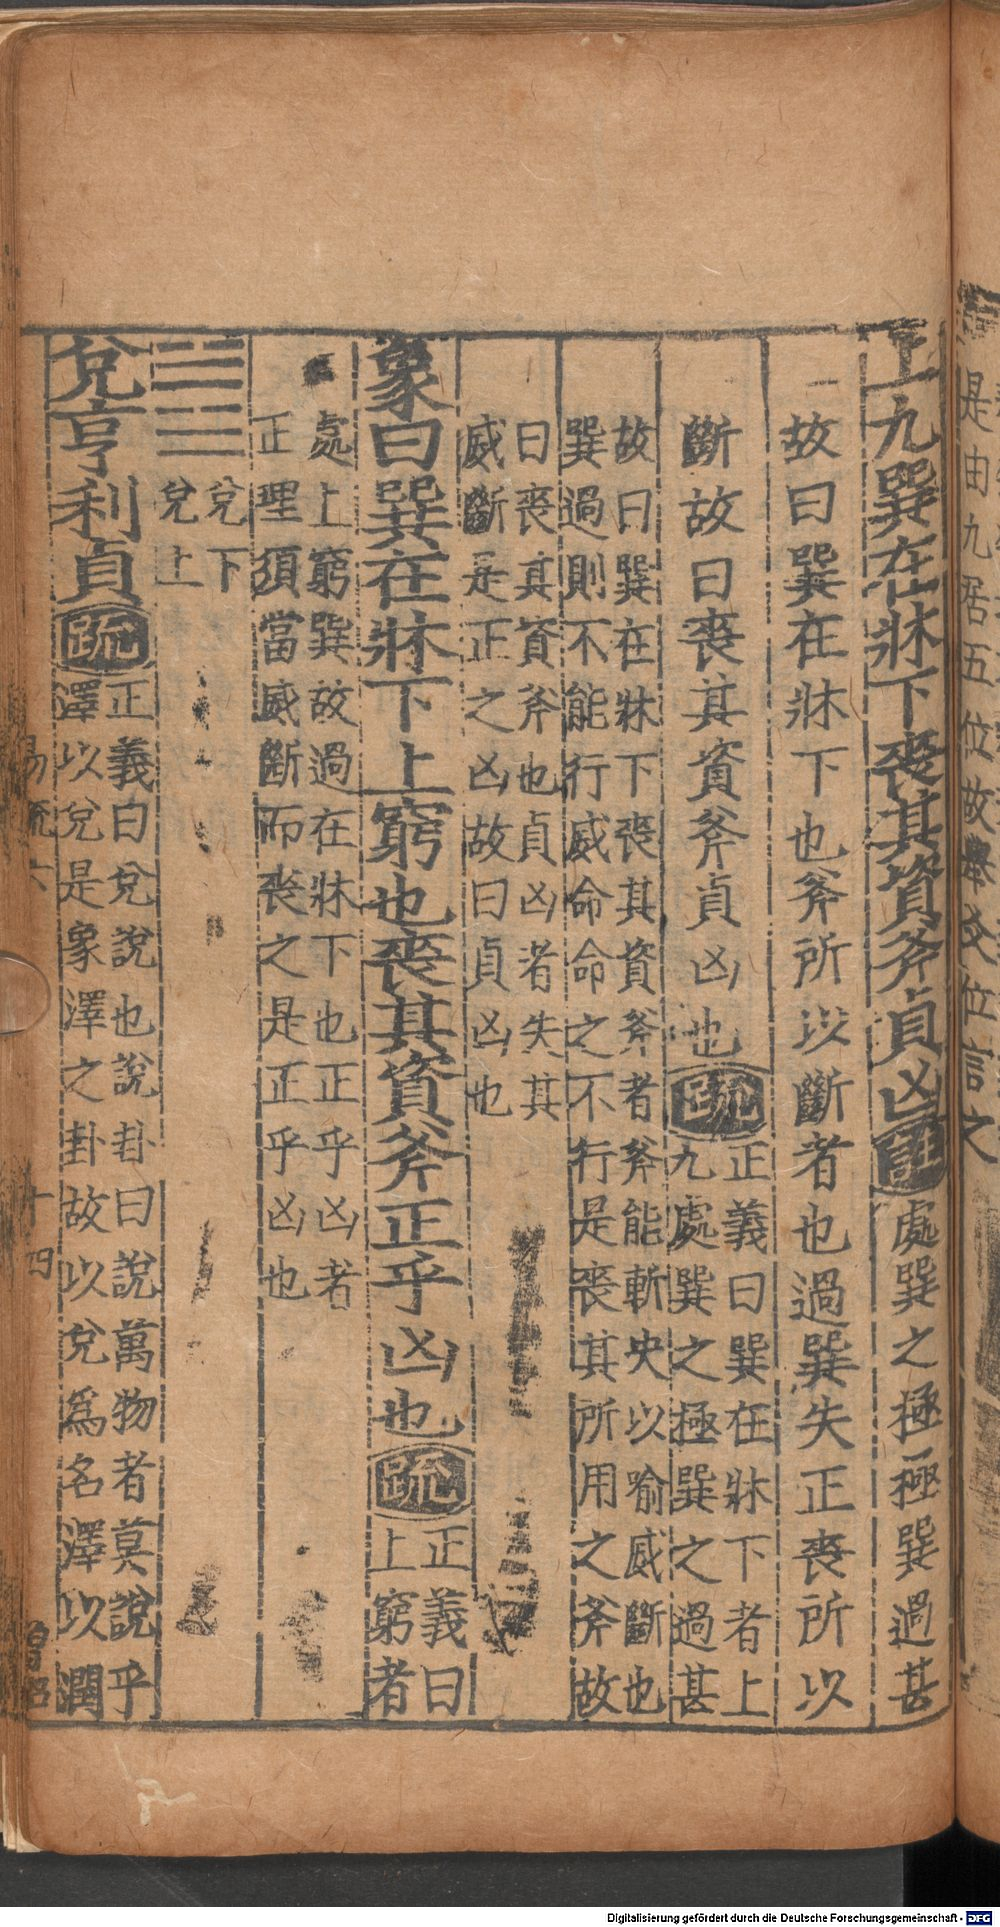 是由九居五位故舉爻位言之
上九巽在牀下喪其資斧貞凶註處巽之極極巽過甚
故曰巽在牀下也斧所以斷者也過巽失正喪所以
斷故曰喪其資斧貞凶也疏正義曰巽在牀下者上
九處巽之極巽之過甚
故曰巽在牀下喪其資斧者斧能斬决以喻威斷也
巽過則不能行威命命之不行是喪其所用之斧故
曰喪其資斧也貞凶者失其
威斷是正之凶故曰貞凶也
象曰巽在牀下上窮也喪其資斧正乎凶也疏正義曰
上窮者
處上窮巽故過在牀下也正乎凶者
正理須當威斷而喪之是正乎凶也
兌下
兌上
兌亨利貞疏正義曰兌說也說卦曰說萬物者莫說乎
澤以兌是象澤之卦故以兌爲名澤以潤
易疏六
十四
Digitalisierung gefördert durch die Deutsche Forschungsgemeinschaft - DFG